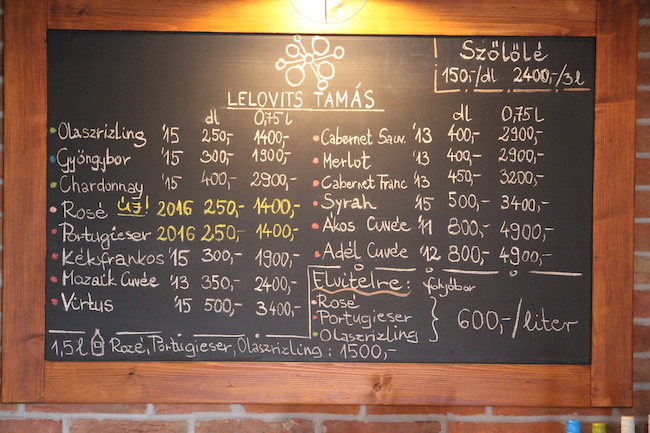 Szőlőlé
150,-/dl 2400,-/3 l
LELOVITS TAMÁS
dl 0,75 l
Olaszrizling '15 250,- 1400,-
Gyöngybor '15 300,- 1900,-
Chardonnay '15 400,- 2900,-
Rosé ÚJ! 2016 250,- 1400,-
Portugieser 2016 250,- 1400,-
Kékfrankos '15 300,- 1900,-
Mozaik Cuvée '13 350,- 2400,-
Virtus '15 500,- 3400,-
1,5 l Rozé, Portugieser, Olaszrizling : 1500,-
dl 0,75 l
Cabernet Sauv. '13 400,- 2900,-
Merlot '13 400,- 2900,-
Cabernet Franc '13 450,- 3200,-
Syrah '15 500,- 3400,-
Ákos Cuvée '11 800,- 4900,-
Adél Cuvée '12 800,- 4900,-
Elvitelre: folyóbor
Rosé
Portugieser
Olaszrizling
600,-/liter